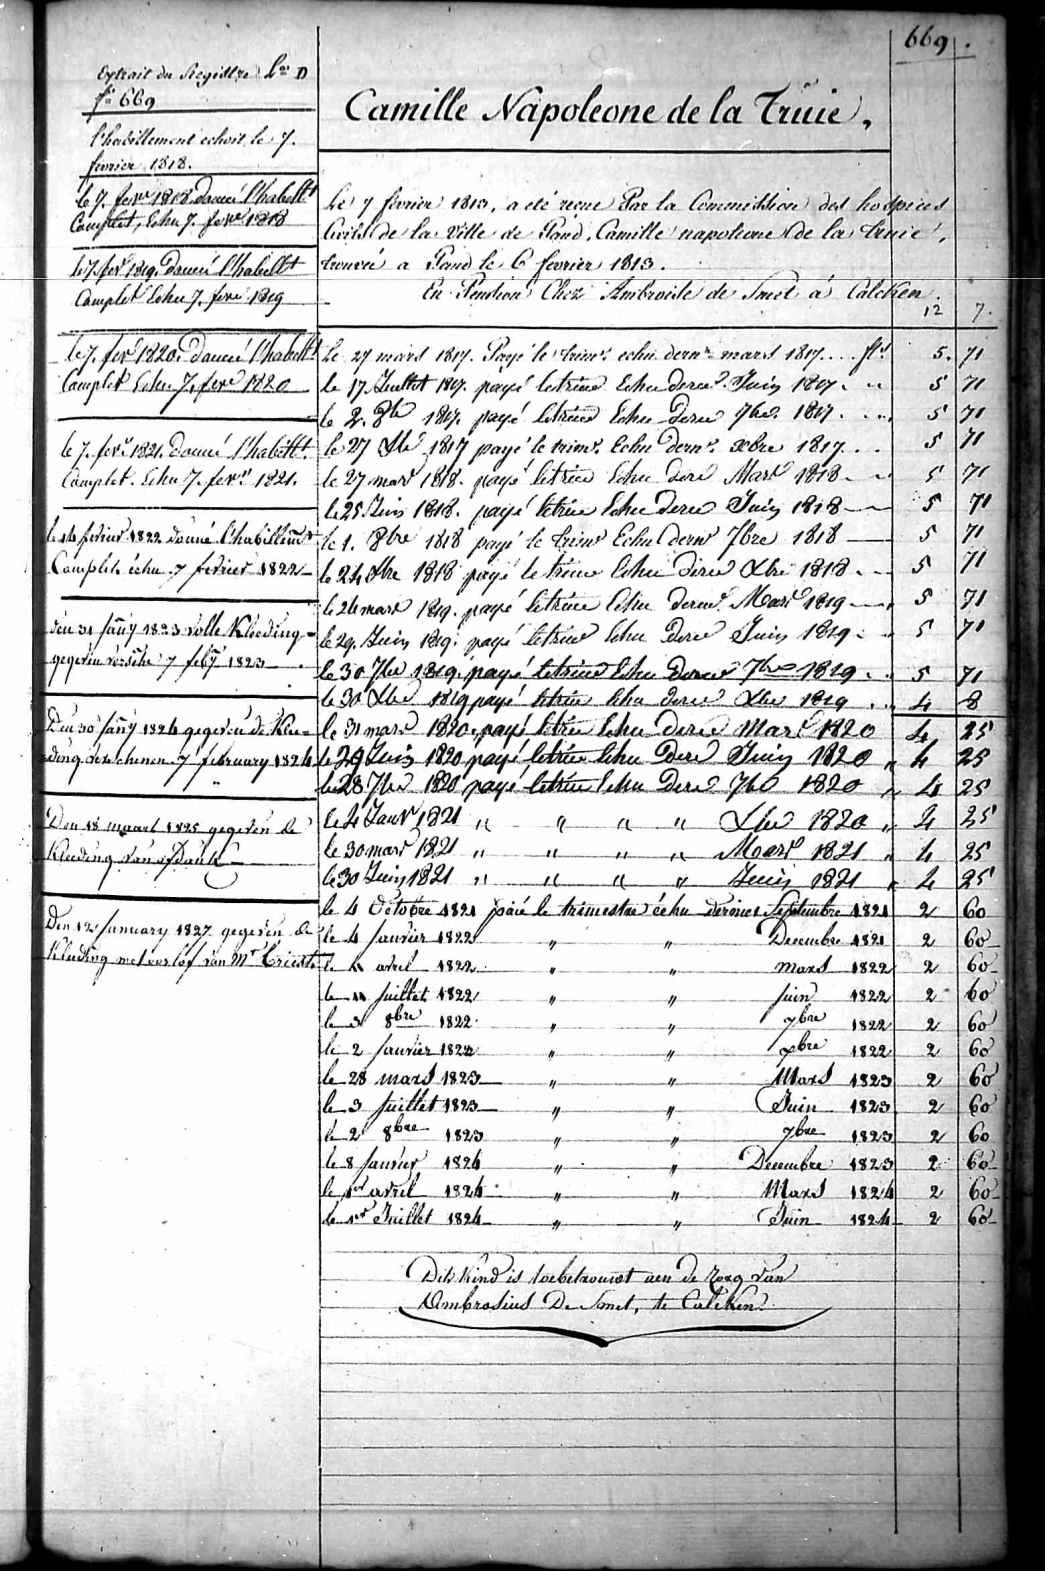 669.
Extrait du Registre L.ra D
f° 669
l'habillement echoit le 7.
fevrier 1818.
le 7. fevr 1818. donné l'habillt
Complet, Echu 7. fevr 1818
le 7. fevr 1819. donné l'habillt
Complet Echu 7. fevr 1819
le 7. fevr 1820. donné l'habillt
Complet Echu 7. fevr 1820
le 7. fevr 1821. donné l'habillt.
Complet. Echu 7. fevr 1821.
le 14 fevrier 1822 donné l'habillemt
Complet échu 7 fevrier 1822
den 31 janry 1823 volle Kleeding
gegeven 7 febry 1823
Den 30 janry 1824 gegeven de Klee=
=ding verschenen 7 february 1824
Den 18 maart 1825 gegeven de
Kleeding
Den 12 January 1827 gegeven de
Kleeding met oorlof van Mr
Camille Napoleone de la Truie.
Le 7 fevrier 1813, a été recue Par la Commission des hospices
Civils de la Ville de Gand, Camille napoleone de la truie,
trouvée a Gand le 6 fevrier 1813.
En Pension Chez Ambroise de Smet á Calcken.
12 7.
Le 27 mars 1817. Payé le trimr. echu dernr mars 1817 . . . . fl. 5. 71
le 17 Juillet 1817. payé le trim Echu dernr. Juin 1817. 5 71
le 2. 8bre 1817. payé le trim Echu dernr 7bre 1817. 5 71
le 27 Xbre 1817 payé le trimr. Echu dernr. xbre 1817 . . . 5 71
le 27 mars 1818. payé le trim Echu dernr Mars 1818 5 71
le 25 Juin 1818. payé le trim Echu dernr Juin 1818 5 71
le 1. 8bre 1818 payé le trimr Echu dernr 7bre 1818 5 71
le 24 Xbre 1818 payé le trim Echu dernr Xbre 1818 5 71
le 26 mars 1819. payé le trim Echu dernr. Mars 1819 5 71
le 29. Juin 1819. payé le trim Echu dernr Juin 1819 5 71
le 30 7bre 1819. payé le trim Echu dernr 7bre 1819 5 71
le 30 Xbre 1819 payé le trim Echu dernr Xbre 1819 4 8
le 31 mars 1820 payé le trim Echu dernr Mars 1820 4 25
le 29 Juin 1820 payé le trim Echu dernr Juin 1820 " 4 25
le 28 7bre 1820 payé le trim Echu dernr 7bre 1820 " 4 25
le 4 Janr 1821 " " " " Xbre 1820 " 4 25
le 30 mars 1821 " " " " Mars 1821 " 4 25
le 30 Juin 1821 " " " " Juin 1821 " 4 25
le 4 Octobre 1821 paié le trimestre échu dernier Septembre 1821 2 60
le 4 Janvier 1822 " " Decembre 1821 2 60
le avril 1822 " " mars 1822 2 60
le Juillet 1822 " " juin 1822 2 60
le 3 8bre 1822 " " 7bre 1822 2 60
le 2 Janvier 1822 " " xbre 1822 2 60
le 28 mars 1823 " " Mars 1823 2 60
le 3 Juillet 1823 " " Juin 1823 2 60
le 2 8bre 1823 " " 7bre 1823 2 60
le 8 Janvier 1824 " " Decembre 1823 2 60
le 1er avril 1824 " " Mars 1824 2 60
le 1er Juillet 1824 " " Juin 1824 2 60
Dit Kind is toebetrouwt aen de zorg van
Ambrosius De Smet, te Calcken.